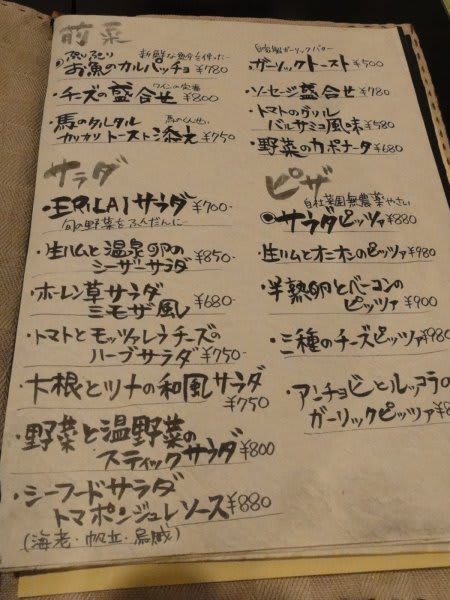 前菜
ぷりぷり 新鮮な魚介を使った
お魚のカルパッチョ ¥780
ワインの定番
・チーズの盛合せ ¥800
・馬のタルタル 馬のくんせい
カリカリトースト添え ¥750
サラダ
・ERILAIサラダ ¥700-
旬の野菜をふんだんに
・生ハムと温泉卵の
シーザーサラダ ¥850-
・ホーレン草サラダ
ミモザ風し ¥680-
・トマトとモッツァレラチーズの
ハーブサラダ ¥750-
・大根とツナの和風サラダ
¥750
・野菜と温野菜の
スティックサラダ ¥800
・シーフードサラダ
トマポンジュレソース ¥880
(海老・帆立・烏賊)
自家製ガーリックバター
・ガーリックトースト ¥500
・ソーセージ盛合せ ¥780
・トマトのグリル
バルサミコ風味 ¥580
・野菜のカポナータ ¥680
ピザ
自社菜園無農薬やさい
サラダピッツァ ¥880
・生ハムとオニオンのピッツァ ¥980
・半熟卵とベーコンの
ピッツァ ¥900
・三種のチーズピッツァ ¥980
・アンチョビとルッコラの
ガーリックピッツァ